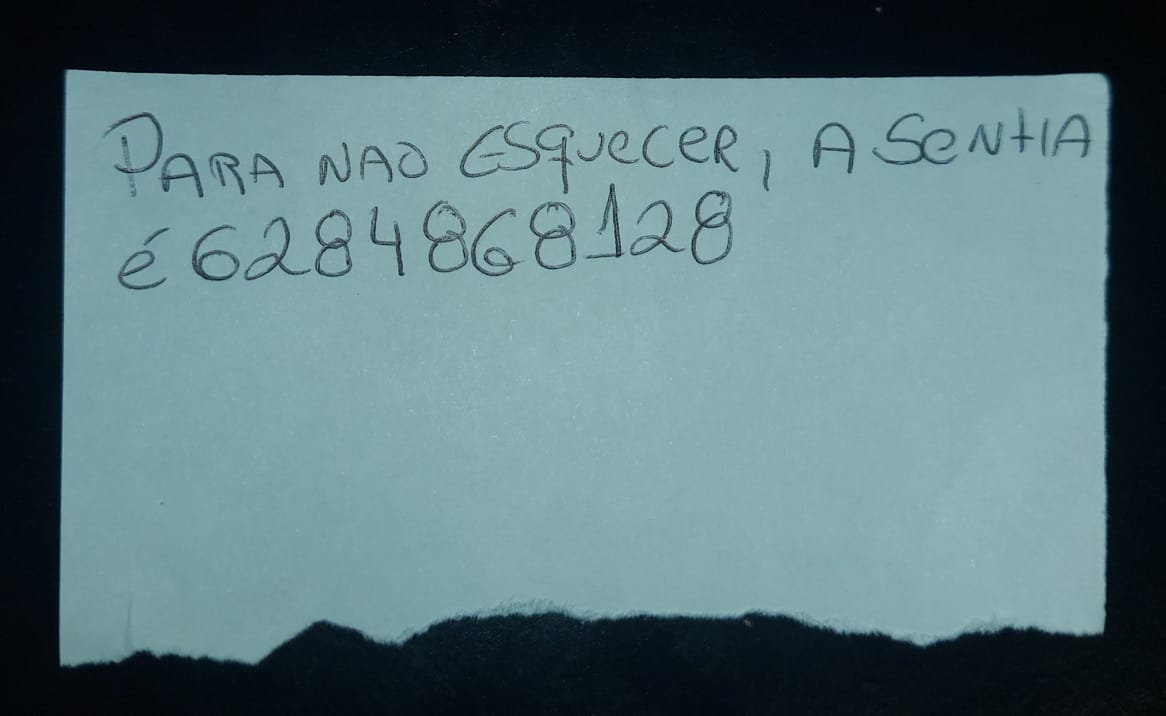 PARA NAO ESQUECER, A SENTIA
é 6284868128